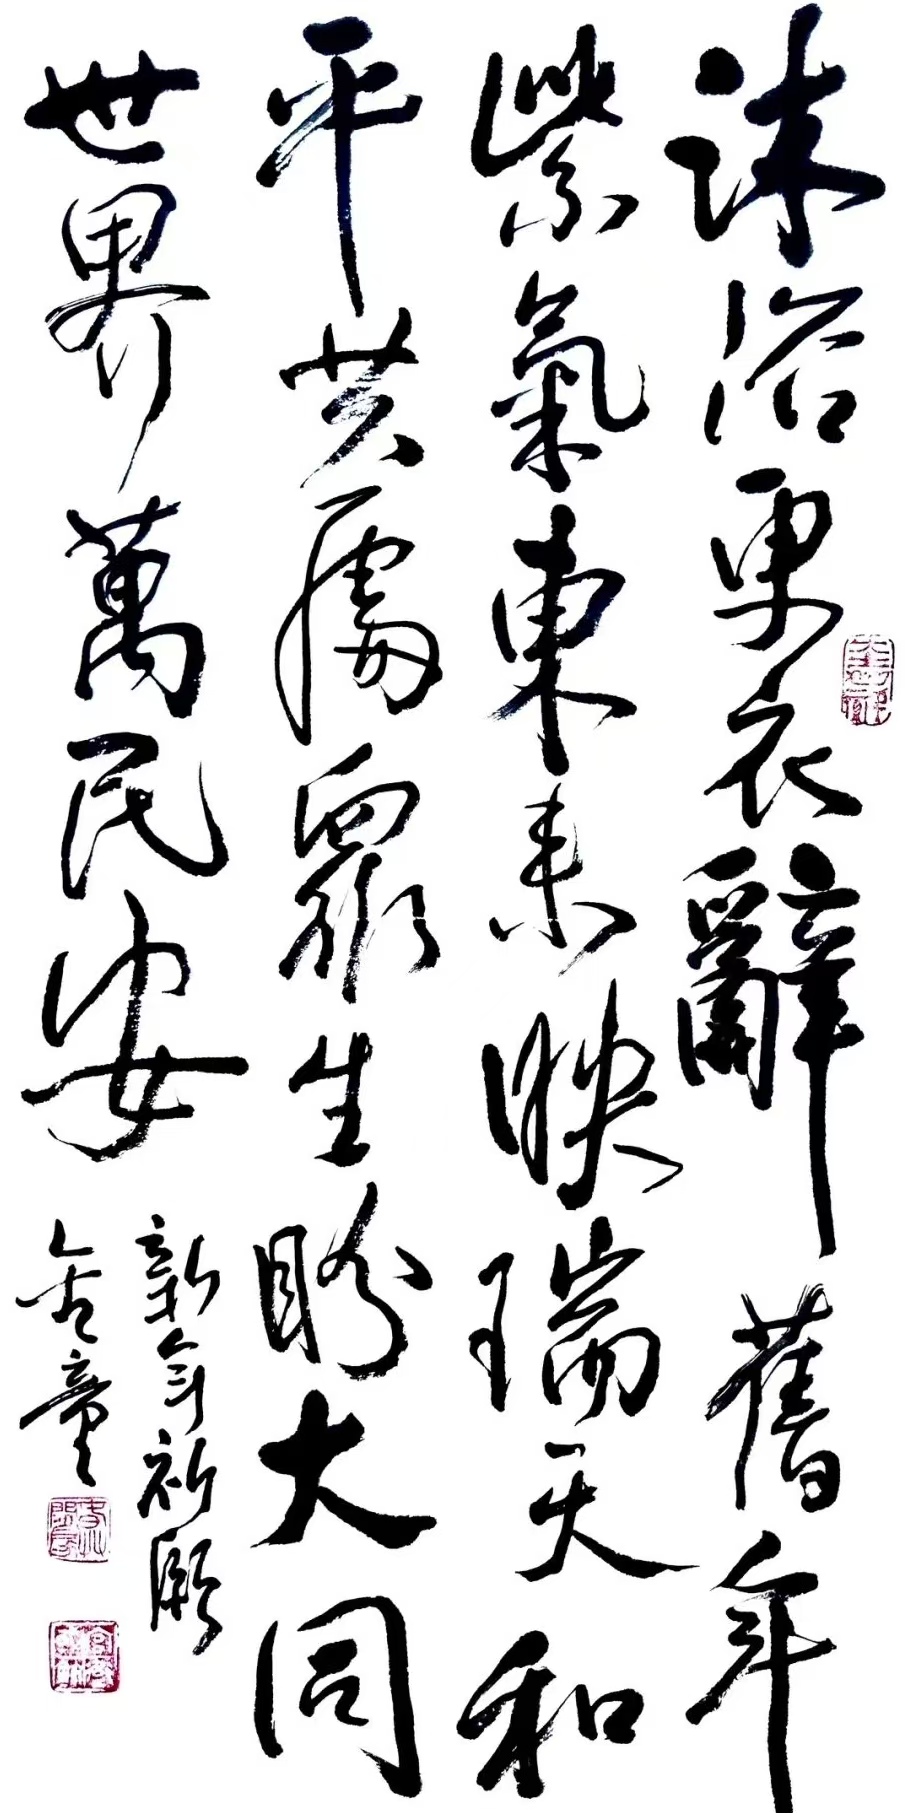 沐浴更衣辭舊年
紫氣東來映瑞天和
平共處眾生盼大同
世界萬民安
新年祈願